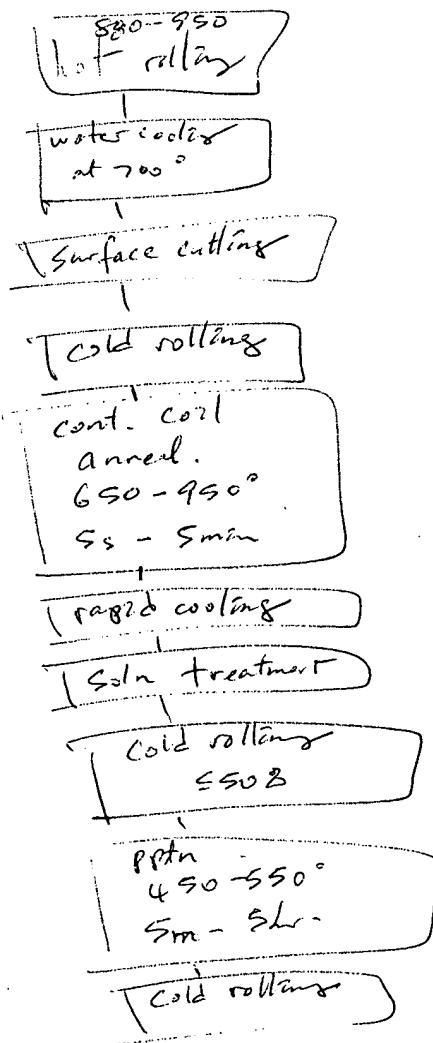 880-950
hot rolling
water cooling
at 700°
surface cutting
cold rolling
cont. coil
anneal.
650-950°
5s - 5min
rapid cooling
Soln treatment
Cold rolling
≤50%
pptn
450-550°
5m - 5hr.
Cold rolling